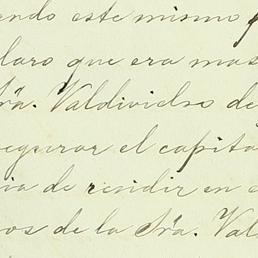 endo este mismo
laro que era mas
Sra. Valdivielso de
segurar el capita
ia de residir en
os de la Sra. Val